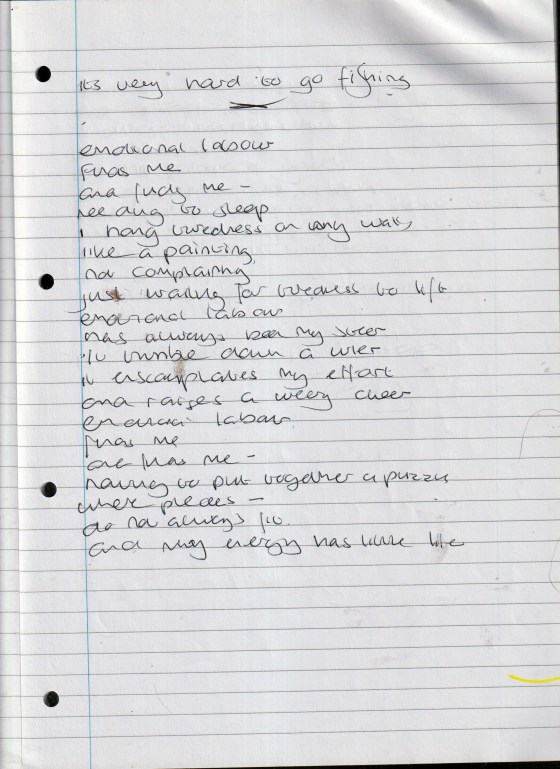 its very hard to go fishing
emotional labour
finds me
and finds me -
needing to sleep
i hang tiredness on my wall,
like a painting,
not complaining
just waiting for tiredness to lift
emotional labour
has always been my
down a
it my effort
and raises a weary cheer
emotional labour
finds me
and finds me -
having to put together a puzzle
where pieces -
do not always fit.
and my energy has little life